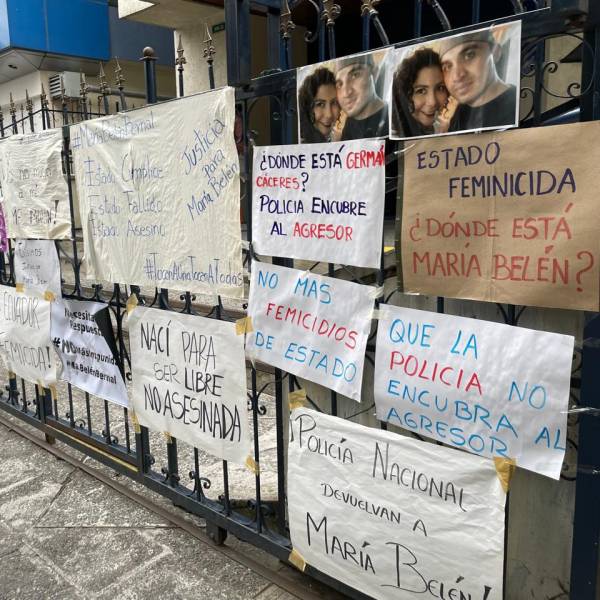 #María Belén Bernal
Estado Cómplice
Estado Fallido
Estado Asesino
Justicia
Para
María Belén
#TocanAUnaTocanATodas
¿DÓNDE ESTÁ GERMAN
CÁCERES?
POLICIA ENCUBRE
AL AGRESOR
ESTADO
FEMINICIDA
¿DÓNDE ESTÁ
MARÍA BELÉN?
ECUADOR
FEMICIDA!
Necesitamos
Respuestas
NACÍ PARA
SER LIBRE
NO ASESINADA
NO MAS
FEMICIDIOS
DE ESTADO
QUE LA
POLICIA NO
ENCUBRA AL
AGRESOR
¡POLICÍA NACIONAL
DEVUELVAN A
MARÍA BELÉN!